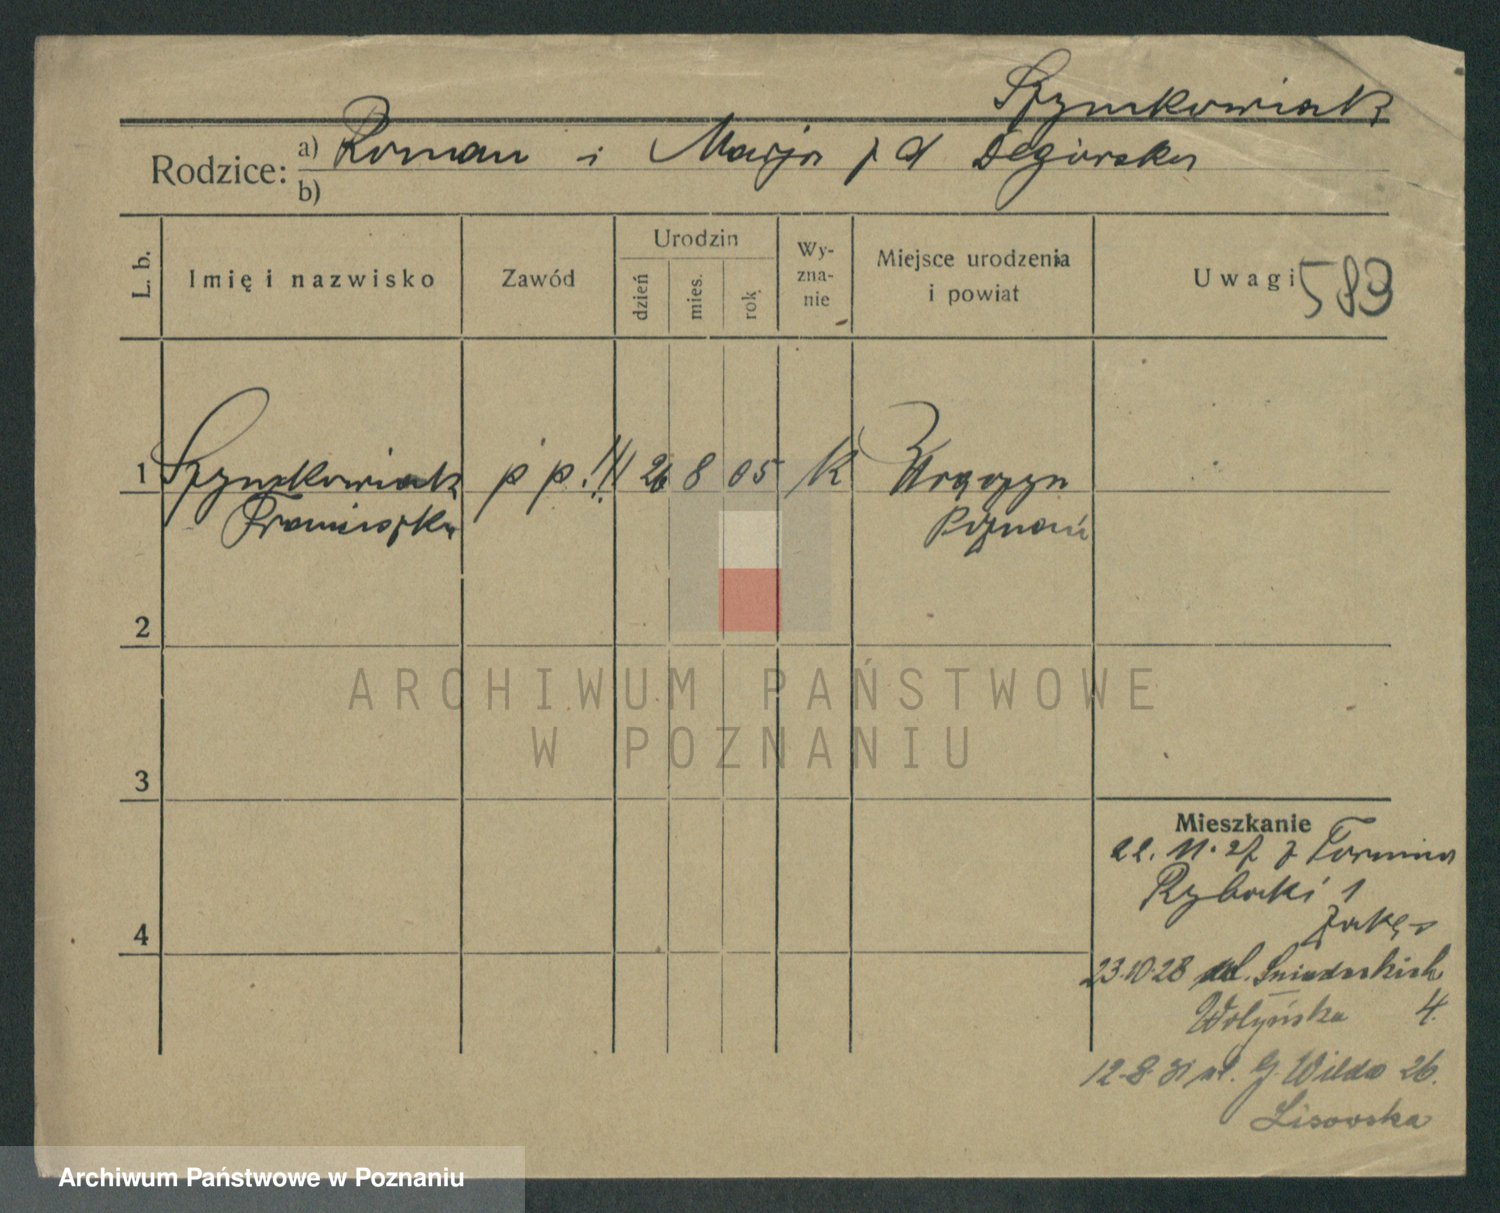 Szymkowiak
Rodzice: a) Roman i Marja z d Degórska
b)
L. b.
Imię i nazwisko
Zawód
Urodzin
dzień
mies.
rok
Wy-
zna-
nie
Miejsce urodzenia
i powiat
Uwagi 583
1 Szymkowiak p p.!!! 26 8 05 K
Franciszka Poznań
2
3
4
ARCHIWUM PAŃSTWOWE
W POZNANIU
Mieszkanie
22. 11. 27 z Torunia
Rybaki 1
23.10.28 ul. Śniadeckich
Wołyńska 4.
12.8.31 ul. G. Wilda 26.
Lisowska
Archiwum Państwowe w Poznaniu